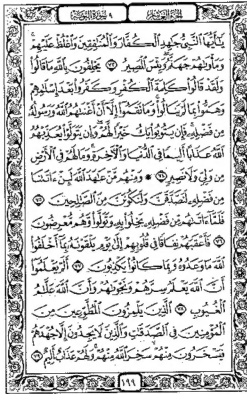 الجزء العاشر ٩ سورة التوبة
يَٰٓأَيُّهَا ٱلنَّبِيُّ جَٰهِدِ ٱلْكُفَّارَ وَٱلْمُنَٰفِقِينَ وَٱغْلُظْ عَلَيْهِمْ
وَمَأْوَىٰهُمْ جَهَنَّمُ وَبِئْسَ ٱلْمَصِيرُ ٧٣ يَحْلِفُونَ بِٱللَّهِ مَا قَالُوا۟
وَلَقَدْ قَالُوا۟ كَلِمَةَ ٱلْكُفْرِ وَكَفَرُوا۟ بَعْدَ إِسْلَٰمِهِمْ
وَهَمُّوا۟ بِمَا لَمْ يَنَالُوا۟ وَمَا نَقَمُوٓا۟ إِلَّآ أَنْ أَغْنَىٰهُمُ ٱللَّهُ وَرَسُولُهُۥ
مِن فَضْلِهِۦ فَإِن يَتُوبُوا۟ يَكُ خَيْرًا لَّهُمْ وَإِن يَتَوَلَّوْا۟ يُعَذِّبْهُمُ
ٱللَّهُ عَذَابًا أَلِيمًا فِى ٱلدُّنْيَا وَٱلْءَاخِرَةِ وَمَا لَهُمْ فِى ٱلْأَرْضِ
مِن وَلِىٍّ وَلَا نَصِيرٍ ٧٤ وَمِنْهُم مَّنْ عَٰهَدَ ٱللَّهَ لَئِنْ ءَاتَىٰنَا
مِن فَضْلِهِۦ لَنَصَّدَّقَنَّ وَلَنَكُونَنَّ مِنَ ٱلصَّٰلِحِينَ ٧٥
فَلَمَّآ ءَاتَىٰهُم مِّن فَضْلِهِۦ بَخِلُوا۟ بِهِۦ وَتَوَلَّوا۟ وَّهُم مُّعْرِضُونَ
٧٦ فَأَعْقَبَهُمْ نِفَاقًا فِى قُلُوبِهِمْ إِلَىٰ يَوْمِ يَلْقَوْنَهُۥ بِمَآ أَخْلَفُوا۟
ٱللَّهَ مَا وَعَدُوهُ وَبِمَا كَانُوا۟ يَكْذِبُونَ ٧٧ أَلَمْ يَعْلَمُوٓا۟
أَنَّ ٱللَّهَ يَعْلَمُ سِرَّهُمْ وَنَجْوَىٰهُمْ وَأَنَّ ٱللَّهَ عَلَّٰمُ
ٱلْغُيُوبِ ٧٨ ٱلَّذِينَ يَلْمِزُونَ ٱلْمُطَّوِّعِينَ مِنَ
ٱلْمُؤْمِنِينَ فِى ٱلصَّدَقَٰتِ وَٱلَّذِينَ لَا يَجِدُونَ إِلَّا جُهْدَهُمْ
فَيَسْخَرُونَ مِنْهُمْ سَخِرَ ٱللَّهُ مِنْهُمْ وَلَهُمْ عَذَابٌ أَلِيمٌ ٧٩
١٩٩